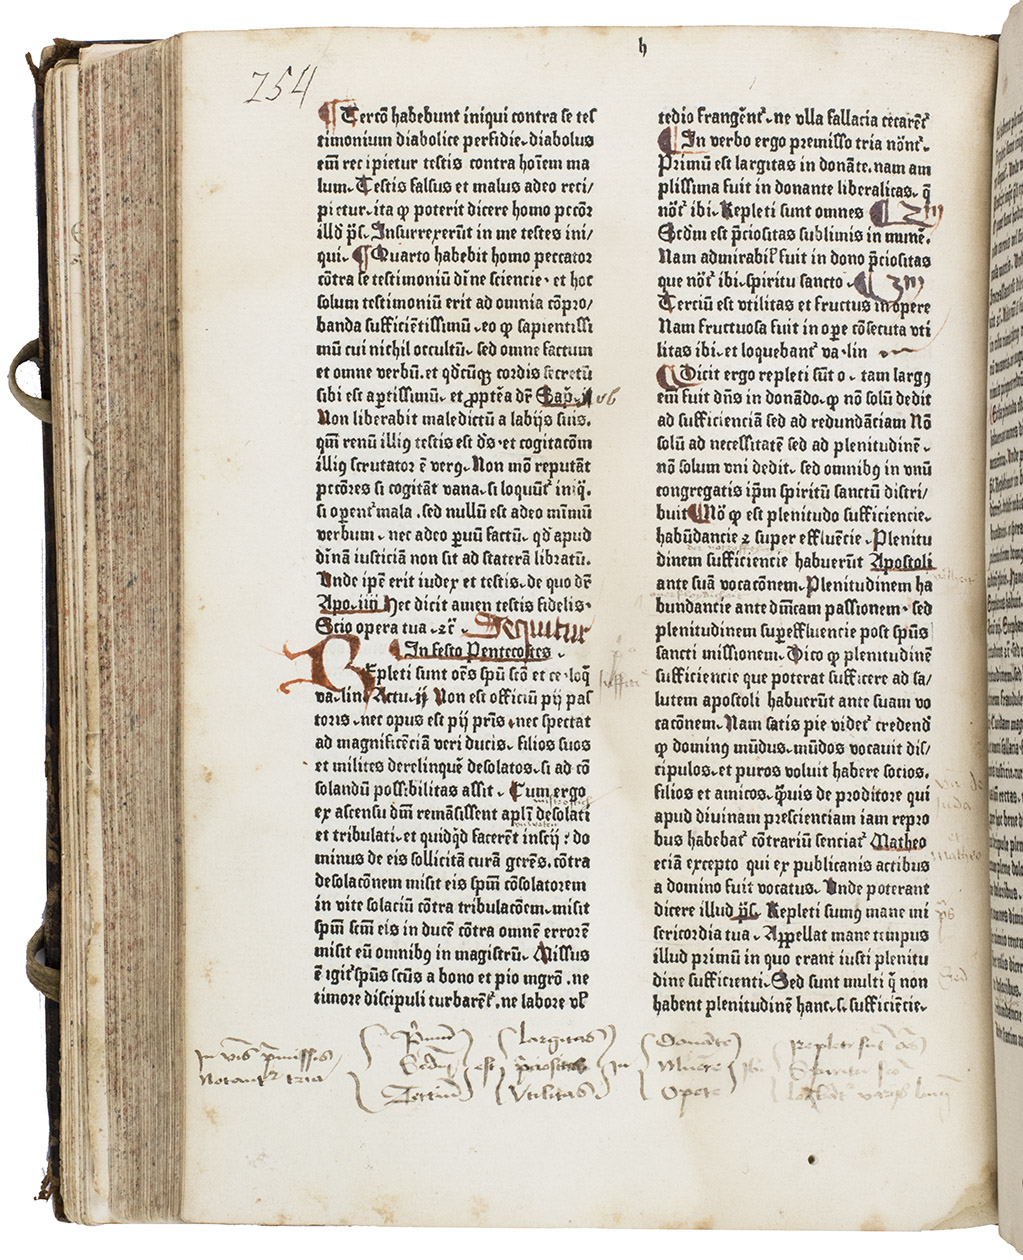 h
254
Tercō habebunt iniqui contra se tes
timonium diabolice perfidie. diabolus
em̄ recipietur testis contra hoīem ma
lum. Testis falsus et malus adeo reci/
pietur. ita ꝙ poterit dicere homo pccōr
illd p̄s. Insurrexerūt in me testes ini/
qui. Quarto habebit homo peccator
cōtra se testimoniū dīne sciencie. et hoc
solum testimoniū erit ad omnia cōpro/
banda sufficiētissimū. eo ꝙ sapientissi
mū cui nichil occultū. sed omne factum
et omne verbū. et qd'cūqꝫ cordis secretū
sibi est aꝑtissimū. et ꝓpt'ea dr̄ Sap̄. j
vb
Non liberabit maledictū a labijs suis.
qm̄ renū illiꝰ testis est ds̄. et cogitacōm
illiꝰ scrutator ē verꝰ. Non mō reputāt
pccōres si cogitāt vana. si loquūt' iniq̄.
si oꝑent' mala. sed nullū est adeo mīmū
verbum. nec adeo ꝑuū factū. qd' apud
dīnā iusticiā non sit ad staterā libratū.
Unde ipē erit iudex et testis. de quo dr̄
Apo. iiij Hec dicit amen testis fidelis.
Scio opera tua. ⁊c̄. Sequitur
In festo Pentecostes.
Repleti sunt oēs spū scō et ce. loq̄
va. lin Actu. ij Non est officiū pij pas
toris. nec opus est pij pr̄is. nec spectat
ad magnificēciā veri ducis. filios suos
et milites derelinquē desolatos. si ad cō
solandū possibilitas assit. Cum ergo
ex ascensu dn̄i remāsissent apl̄i desolati
et tribulati. et quidq̄d facerēt inscij: do
minus de eis sollicitā curā gerēs. cōtra
desolacōnem misit eis spm̄ cōsolatorem
in vite solaciū cōtra tribulacōem. misit
spm̄ scm̄ eis in ducē cōtra omnē errorē
misit eū omnibꝰ in magistrū. Missus
ē igit' spūs scūs a bono et pio mgrō. ne
timore discipuli turbarēt'. ne labore vl'
tedio frangēnt'. ne vlla fallacia cecarēt'
In verbo ergo premisso tria nōnt'.
Primū est largitas in donāte. nam am
plissima fuit in donante liberalitas. q̄
nōt' ibi. Repleti sunt omnes 2m
Scdm est p̄ciositas sublimis in munē.
Nam admirabil' fuit in dono p̄ciositas
que nōt' ibi. spiritu sancto. 3m
Terciū est vtilitas et fructus in opere
Nam fructuosa fuit in oꝑe cōsecuta vti
litas ibi. et loquebant' va. lin
Dicit ergo repleti sūt o. tam largꝰ
em̄ fuit dn̄s in donādo. ꝙ nō solū dedit
ad sufficienciā sed ad redundāciam Nō
solū ad necessitatē sed ad plenitudinē.
nō solum vni dedit. sed omnibꝰ in vnū
congregatis ip̄m spiritū sanctū distri/
buit Nō ꝙ est plenitudo sufficiencie.
habūdancie ⁊ super effluēcie. Plenitu
dinem sufficiencie habuerūt Apostoli
ante suā vocacōnem. Plenitudinem ha
bundancie ante dn̄icam passionem. sed
plenitudinem suꝑeffluencie post spūs
sancti missionem. Dico ꝙ plenitudinē
sufficiencie que poterat sufficere ad sa/
lutem apostoli habuerūt ante suam vo
cacōnem. Nam satis pie videt' credend'
ꝙ dominꝰ mūdus. mūdos vocauit dis/
cipulos. et puros voluit habere socios.
filios et amicos. q̄uis de proditore qui
apud diuinam prescienciam iam repro
bus habebat' cōtrariū senciat' Matheo
eciā excepto qui ex publicanis actibus
a domino fuit vocatus. Unde poterant
dicere illud p̄s. Repleti sumꝰ mane mi
sericordia tua. Appellat mane tempus
illud primū in quo erant iusti plenitu
dine sufficienti. Sed sunt multi q̄ non
habent plenitudinē hanc. s. sufficiēcie.
Matheo
p̄s
In v̄bis p̄missis
Notant' tria
Primū
Scdm̄
Terciū
est
largitas
p̄ciositas
Vtilitas
in
Donāte
Munēre
Opere
ibi
Repleti sūt oēs
Spiritu scō